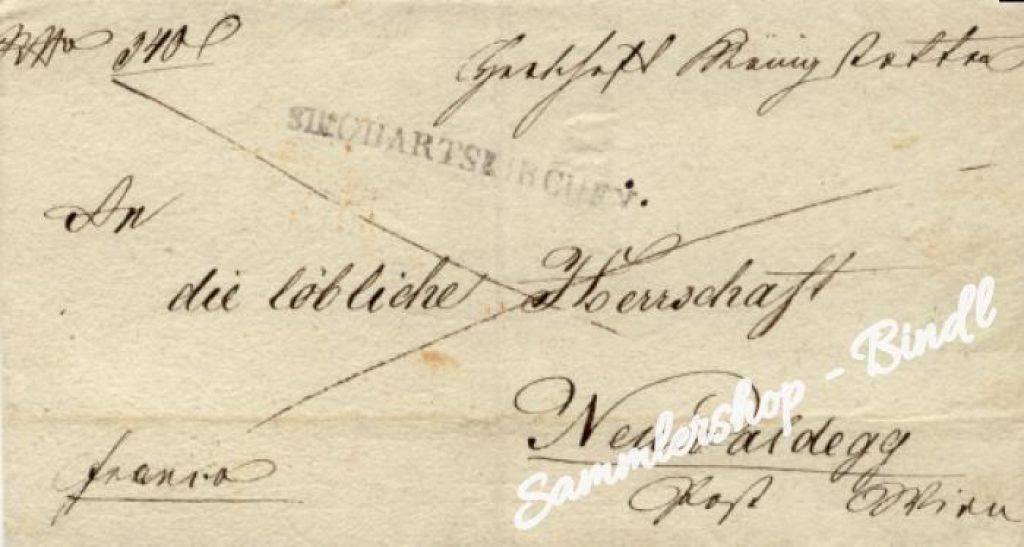 No 340
Herrschaft Königstetten
SIEGHARTSKIRCHEN
An
die löbliche Herrschaft
Neu Paldegg
franco
Post Wien
Sammlershop - Bindl